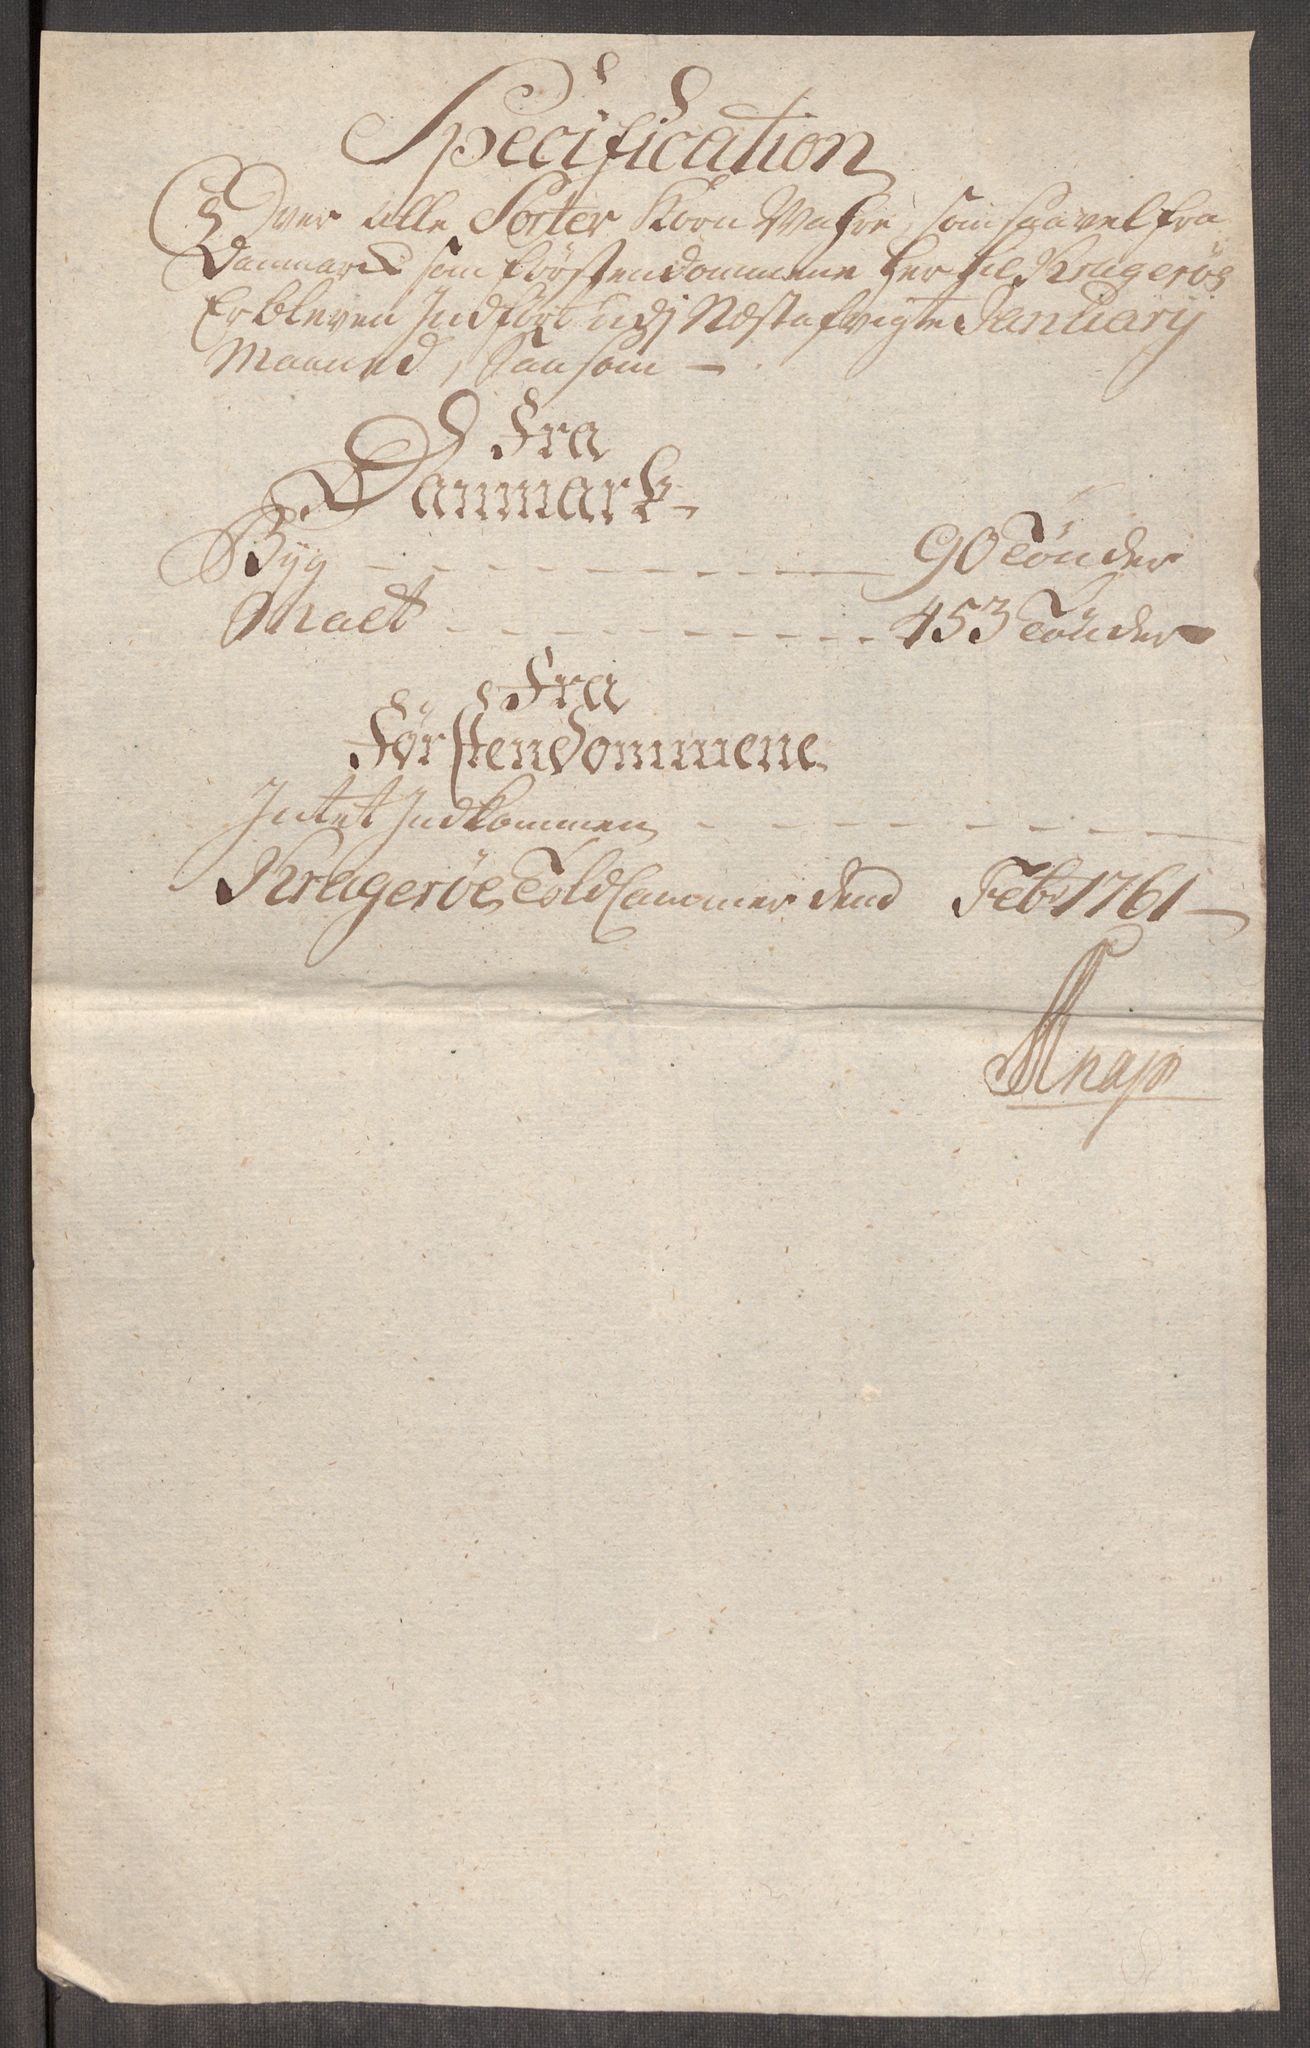 Specification
Over alle Sorter Korn Wahre, som saavel fra
Danmark som Förstendommene her til Kragerøe
Er bleven Indført udj Næstafvigte January
Maaned, Saasom —
Fra
Danmark
Byg — 90 Tønder
Malt — 453 Tønder
Fra
Förstendommene
Intet Indkommen —
Kragerøe Told Cammer dend Febr 1761 —
Knap